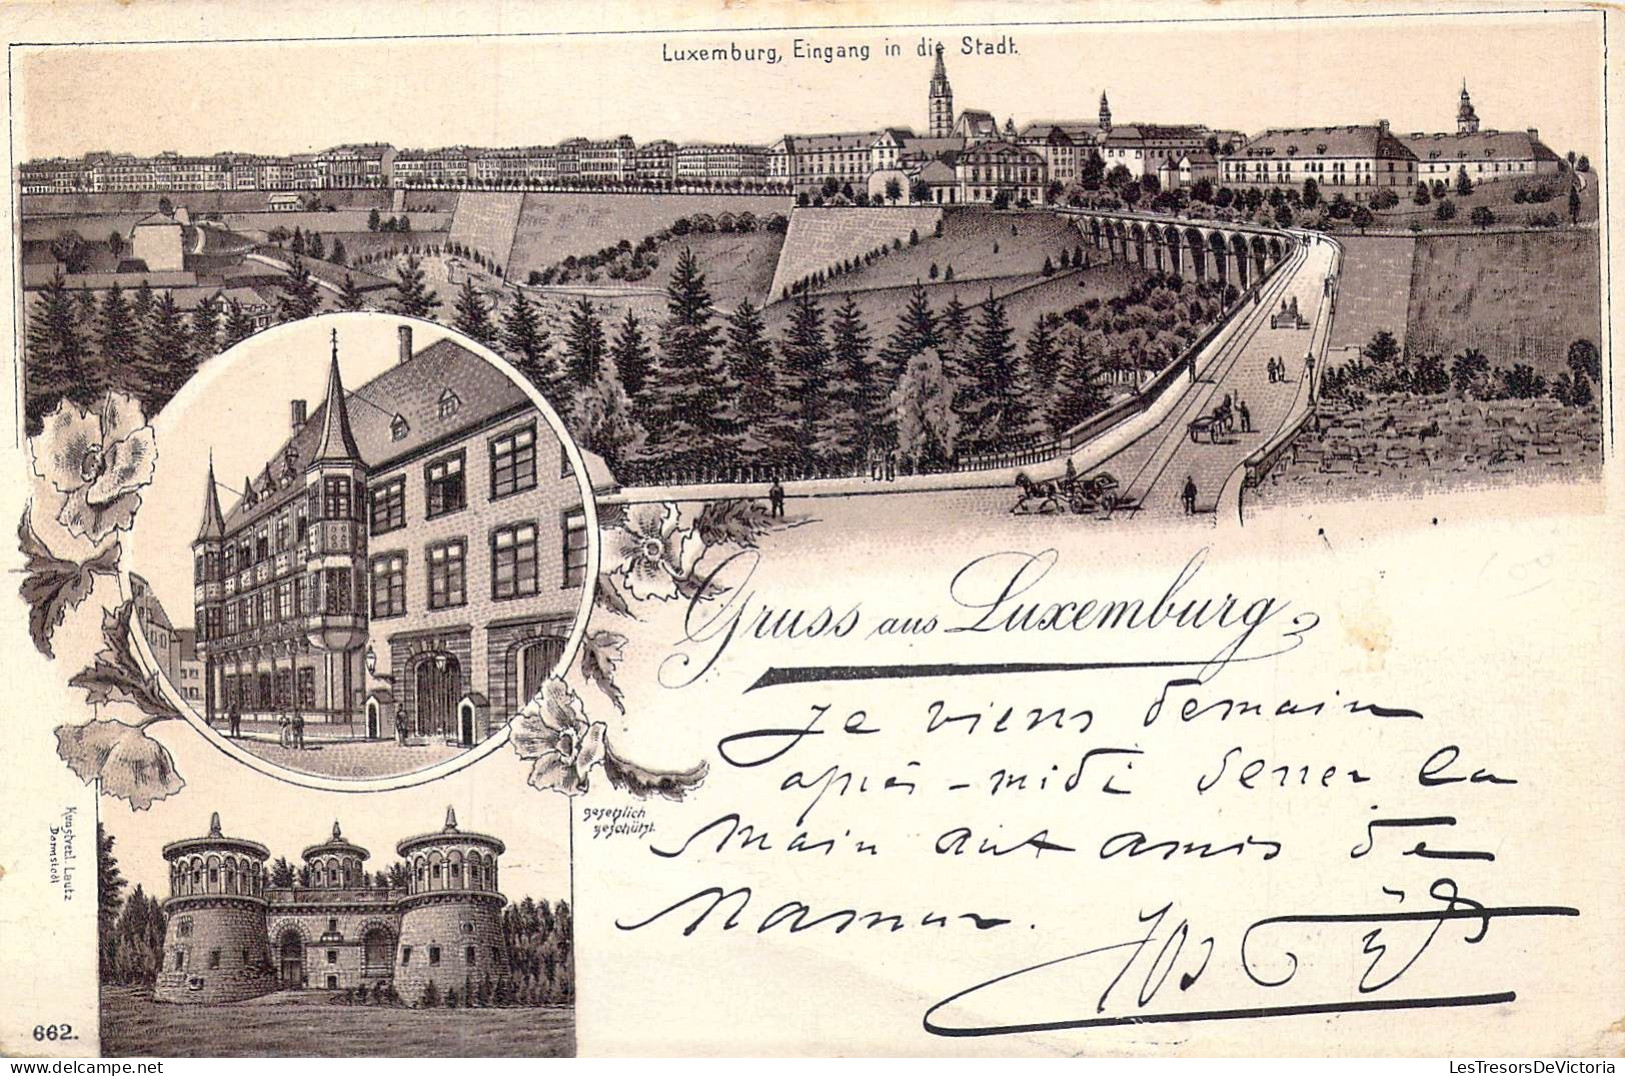 Luxemburg, Eingang in die Stadt.
Gruss aus Luxemburg
Je viens demain
après-midi serrer la
main aux amis de
Namur.
gesetzlich
geschützt.
Kunstverl. Lautz
Darmstadt
662.
LesTresorsDeVictoria